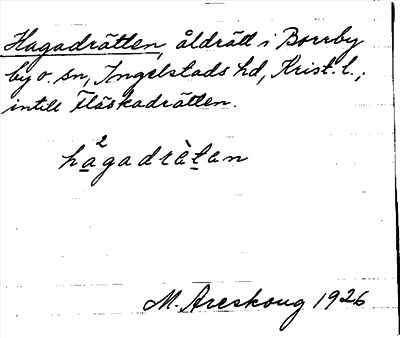 Hagadrätten, åldrätt i Borrby
by o. sn, Ingelstads hd, Krist. l.;
intill Fläskadrätten.
hà²gadrätan
M. Areskoug 1926